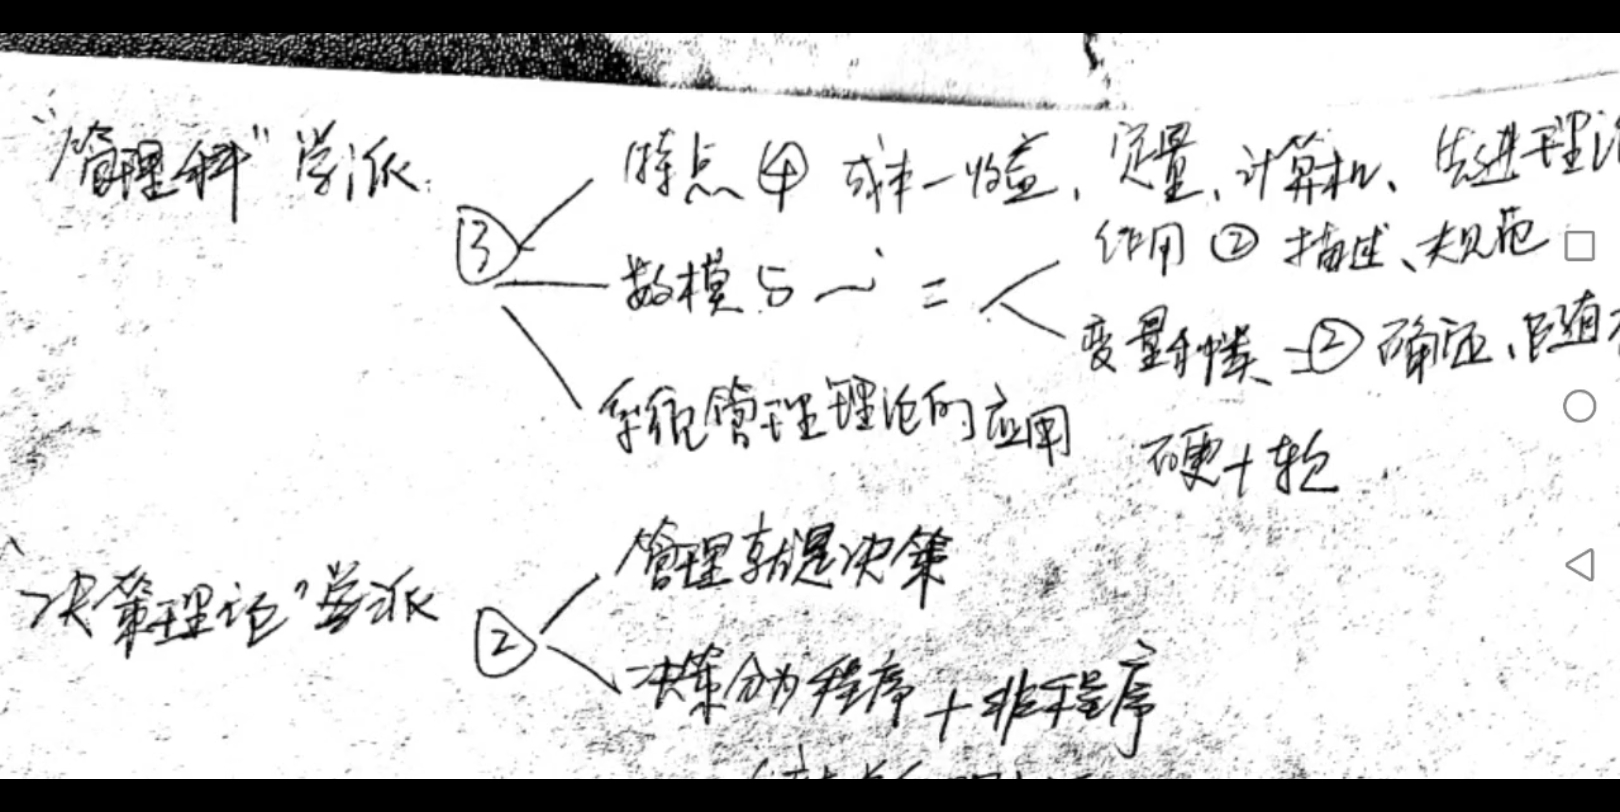 "管理科"学派
③
特点④ 成本—收益、定量、计算机、先进理论
数模与 〜 =
作用② 描述、规范
变量种类 ② 确证、随
系统管理理论的应用
硬+软
决策理论"学派
②
管理就是决策
决策分为程序+非程序